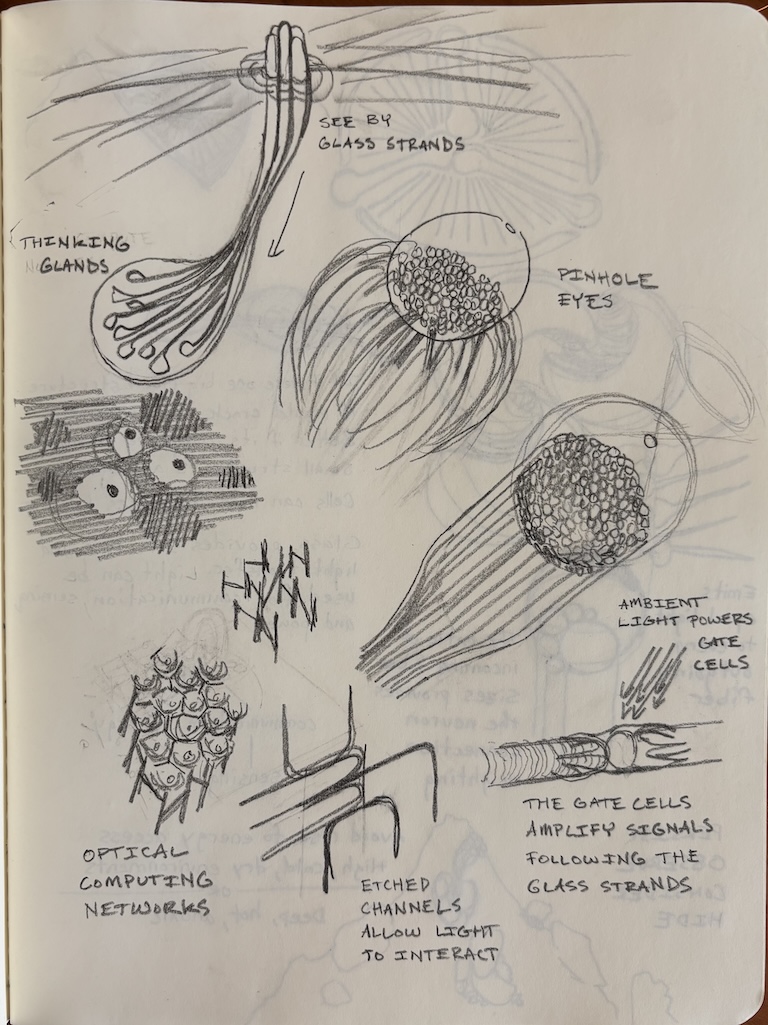 SEE BY
GLASS STRANDS
THINKING
GLANDS
PINHOLE
EYES
AMBIENT
LIGHT POWERS
GATE
CELLS
OPTICAL
COMPUTING
NETWORKS
ETCHED
CHANNELS
ALLOW LIGHT
TO INTERACT
THE GATE CELLS
AMPLIFY SIGNALS
FOLLOWING THE
GLASS STRANDS